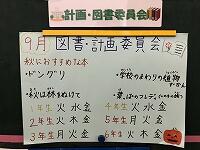 計画・図書委員会
9月 図書・計画委員会
秋におすすめな本
・ドングリ
・秋は林をぬけて
・学校のまわりの植物ずかん
1年生 火 水 金
2年生 火 木 金
3年生 月 火 金
4年生 火 水 金
5年生 月 火 金
6年生 火 木 金